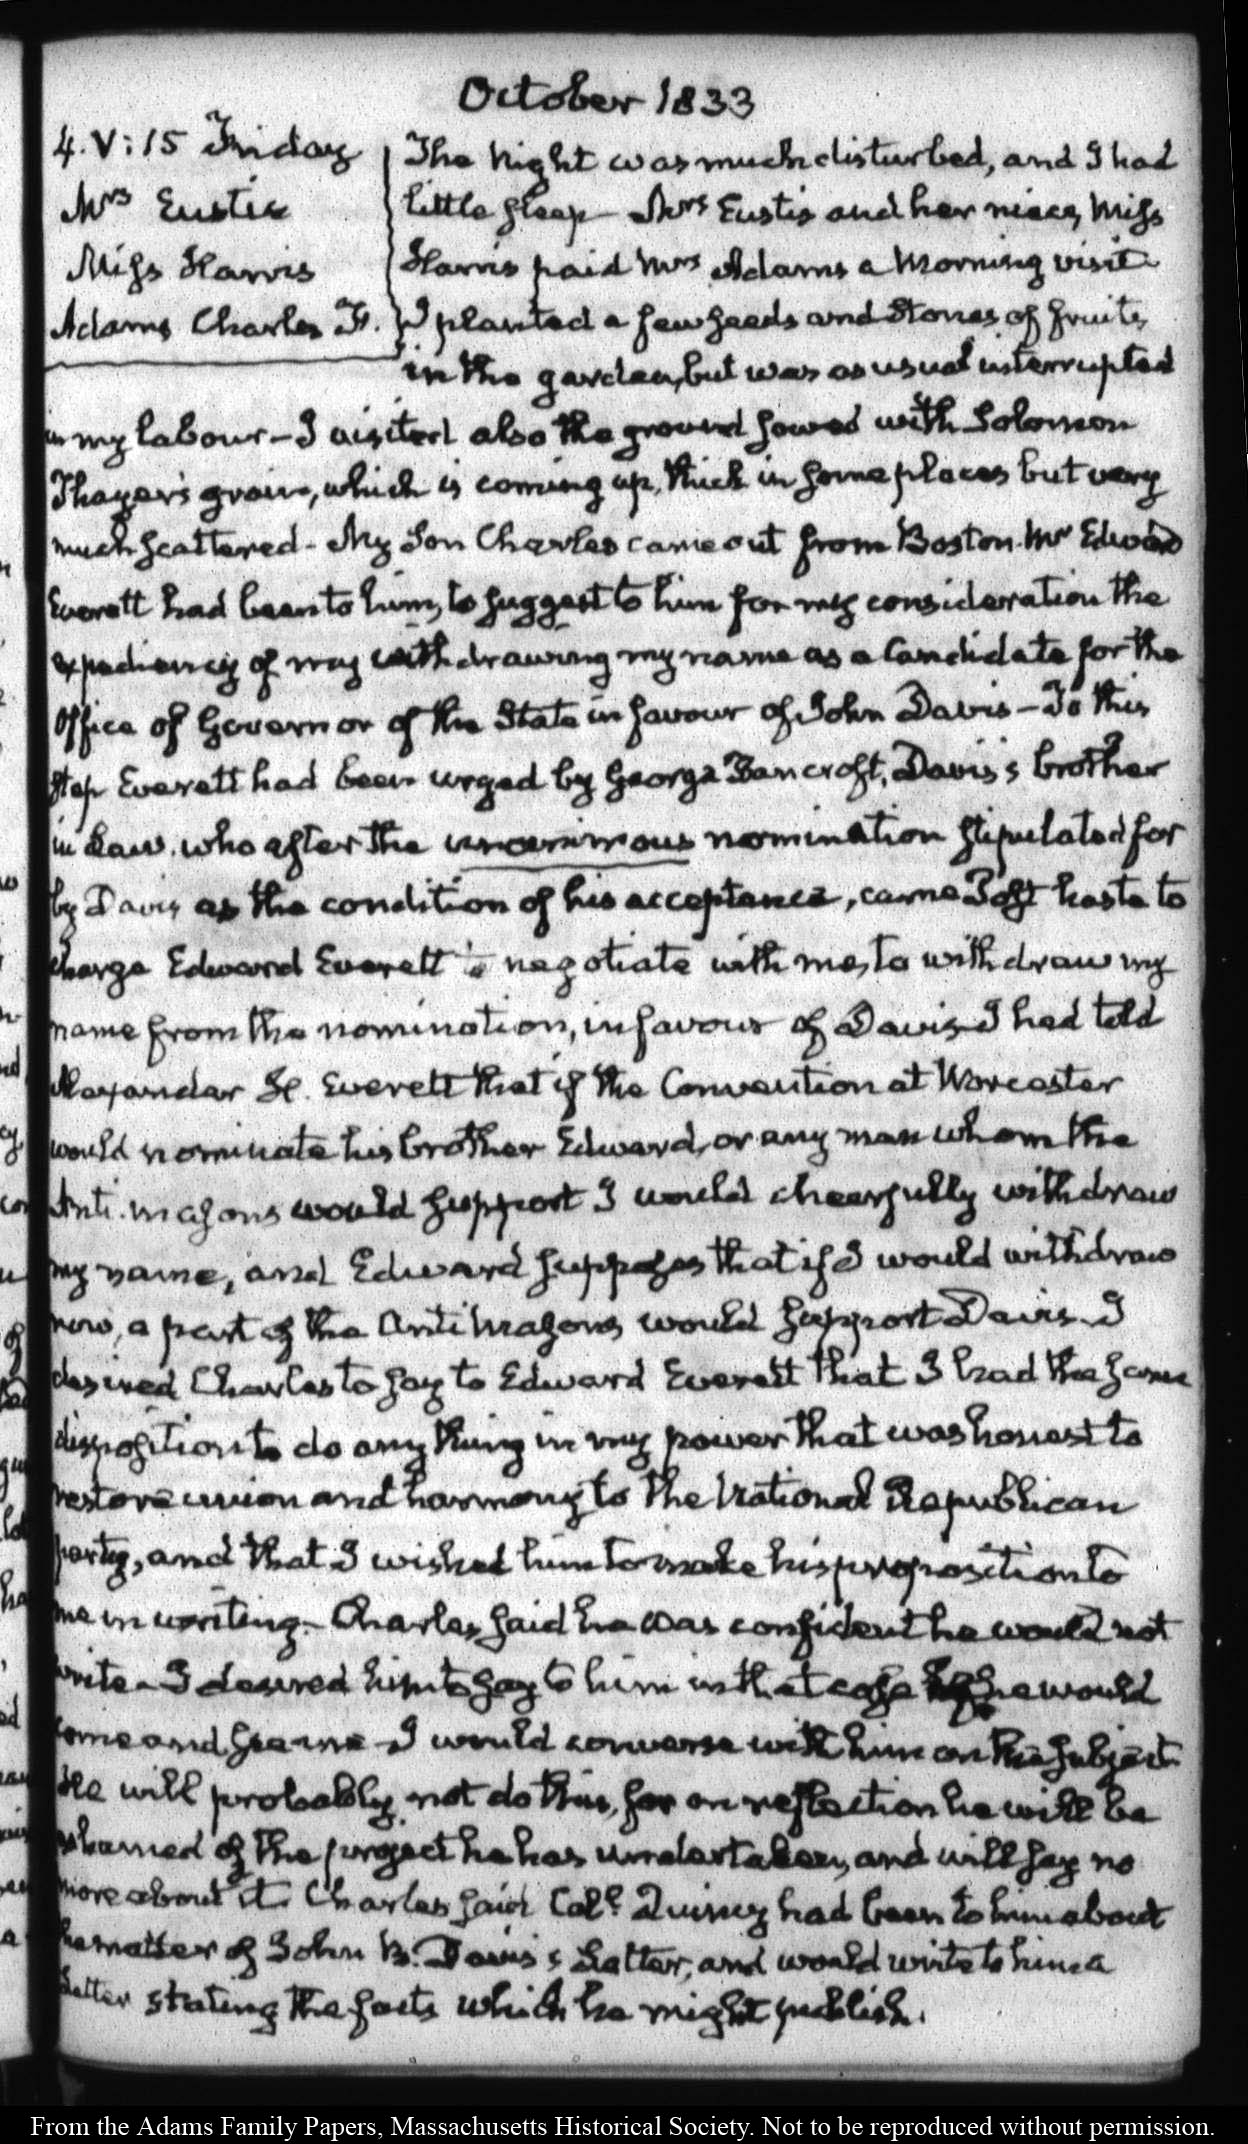 October 1833
4. V:15 Friday
Mrs Eustis
Miss Harris
Adams Charles F.
The Night was much disturbed, and I had
little sleep - Mrs Eustis and her niece, Miss
Harris paid Mrs Adams a Morning visit
I planted a few seeds and Stones of fruits,
in the garden, but was as usual interrupted
in my labour - I visited also the ground sowed with Solomon
Thayer's grain, which is coming up, thick in some places but very
much scattered - My Son Charles came out from Boston. Mr Edward
Everett had been to him, to suggest to him for my consideration the
expediency of my withdrawing my name as a Candidate for the
Office of Governor of the State in favour of John Davis - To this
step Everett had been urged by George Bancroft, Davis's brother
in Law. who after the unanimous nomination stipulated for
by Davis as the condition of his acceptance, came Post haste to
charge Edward Everett to negotiate with me, to withdraw my
name from the nomination, in favour of Davis. I had told
Alexander H. Everett that if the Convention at Worcester
would nominate his brother Edward, or any man whom the
Anti-masons would support I would cheerfully withdraw
my name, and Edward supposes that if I would withdraw
now, a part of the Antimasons would support Davis. I
desired Charles to say to Edward Everett that I had the same
disposition to do any thing in my power that was honest to
restore union and harmony to the National Republican
party, and that I wished him to make his proposition to
me in writing - Charles said he was confident he would not
write - I desired him to say to him in that case if he would
come and see me - I would converse with him on the subject
He will probably not do this, for on reflection he will be
ashamed of the project he has undertaken, and will say no
more about it. Charles said Coll. Quincy had been to him about
the matter of John B. Davis's Letter, and would write to him a
Letter stating the facts which he might publish.
From the Adams Family Papers, Massachusetts Historical Society. Not to be reproduced without permission.